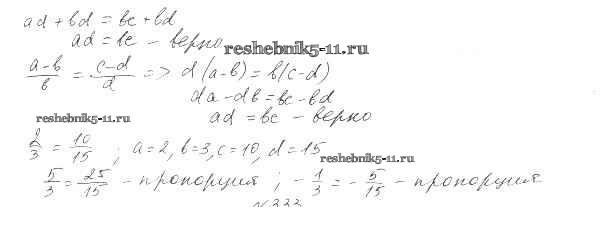 ad + bd = bc + bd
ad = bc – верно
reshebnik5-11.ru
(a-b)/b = (c-d)/d => d(a-b) = b(c-d)
da - db = bc - bd
reshebnik5-11.ru
ad = bc – верно
2/3 = 10/15 ; a=2, b=3, c=10, d=15
reshebnik5-11.ru
5/3 = 25/15 – пропорция ; -1/3 = -5/15 – пропорция
№222